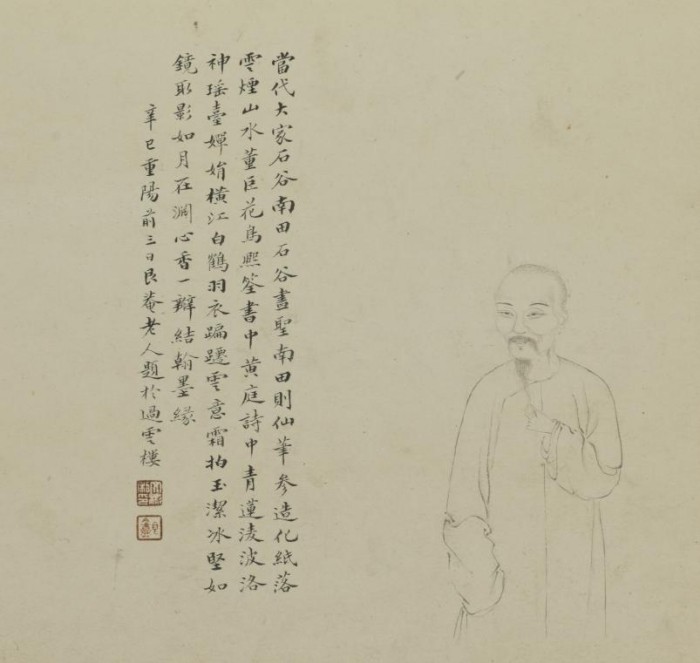 當代大家石谷南田石谷畫聖南田則仙筆參造化紙落
雲煙山水董巨花鳥熙筌書中黃庭詩中青蓮淩波洛
神瑤臺嬋娟橫江白鶴羽衣蹁躚雲意霜拍玉潔冰堅如
鏡取影如月在澗心香一瓣結翰墨緣
辛巳重陽前三日艮菴老人題於過雲樓